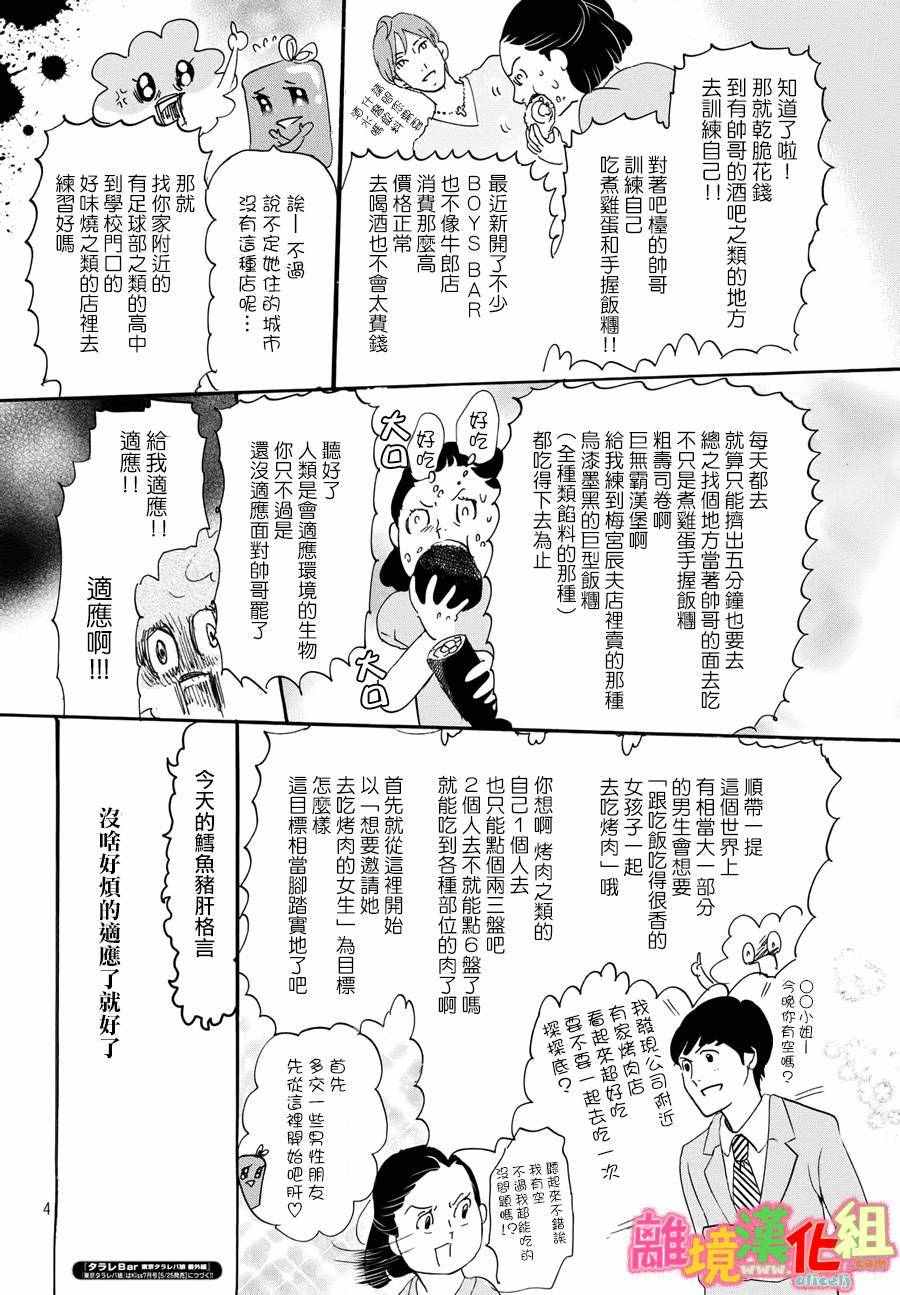 知道了啦！
那就乾脆花錢
到有帥哥的酒吧之類的地方
去訓練自己!!
對著吧檯的帥哥
訓練自己
吃煮雞蛋和手握飯糰!!
最近新開了不少
BOYS BAR
也不像牛郎店
消費那麼高
價格正常
去喝酒也不會太費錢
誒—不過
說不定她住的城市
沒有這種店呢…
那就
找你家附近的
有足球部之類的高中
到學校門口的
好味燒之類的店裡去
練習好嗎
每天都去
就算只能擠出五分鐘也要去
總之找個地方當著帥哥的面去吃
不只是煮雞蛋手握飯糰
粗壽司卷啊
巨無霸漢堡啊
給我練到梅宮辰夫店裡賣的那種
烏漆墨黑的巨型飯糰
（全種類餡料的那種）
都吃得下去為止
好吃
好吃
大口
大口
聽好了
人類是會適應環境的生物
你只不過是
還沒適應面對帥哥罷了
給我適應!!
適應!!
適應啊!!!
順帶一提
這個世界上
有相當大一部分
的男生會想要
「跟吃飯吃得很香的
女孩子一起
去吃烤肉」哦
你想啊 烤肉之類的
自己1個人去
也只能點個兩三盤吧
2個人去不就能點6盤了嗎
就能吃到各種部位的肉了啊
首先就從這裡開始
以「想要邀請她
去吃烤肉的女生」為目標
怎麼樣
這目標相當腳踏實地了吧
○○小姐—
今晚你有空嗎？
我發現公司附近
有家烤肉店
看起來超好吃
要不要一起去吃一次
探探底？
聽起來不錯誒
我有空
不過我超能吃的
沒問題嗎!?
首先
多交一些男性朋友
先從這裡開始吧肝♡
今天的鱈魚豬肝格言
沒啥好煩的適應了就好了
4
「タラレBar 東京タラレバ娘 番外編」
「東京タラレバ娘」はKiss7月号(5/25発売)につづく!!
離境漢化組
alicelj